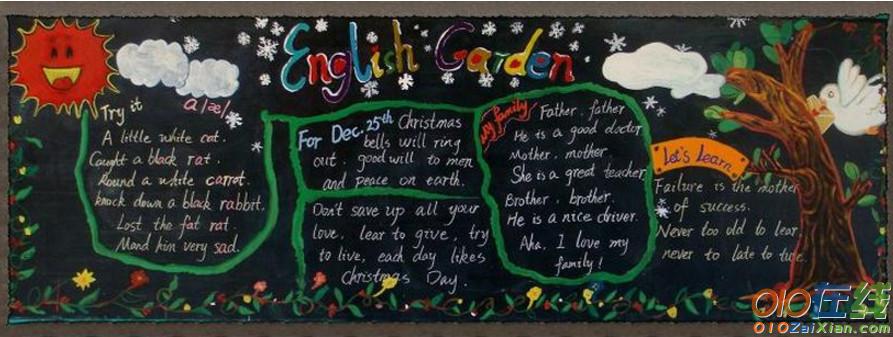 English Garden
Try it
a/æ/
A little white cat.
Caught a black rat.
Round a white carrot.
knock down a black rabbit.
Lost the fat rat.
Mand him very sad.
For Dec. 25th Christmas
bells will ring
out. good will to men
and peace on earth.
Don't save up all your
love, lear to give, try
to live, each day likes
Christmas Day.
My family
Father, father
He is a good doctor
Mother, mother
She is a great teacher
Brother, brother.
He is a nice driver.
Aha, I love my
family!
Let's Learn
Failure is the mother
of success.
Never too old to lear,
never to late to
010在线
010ZaiXian.com